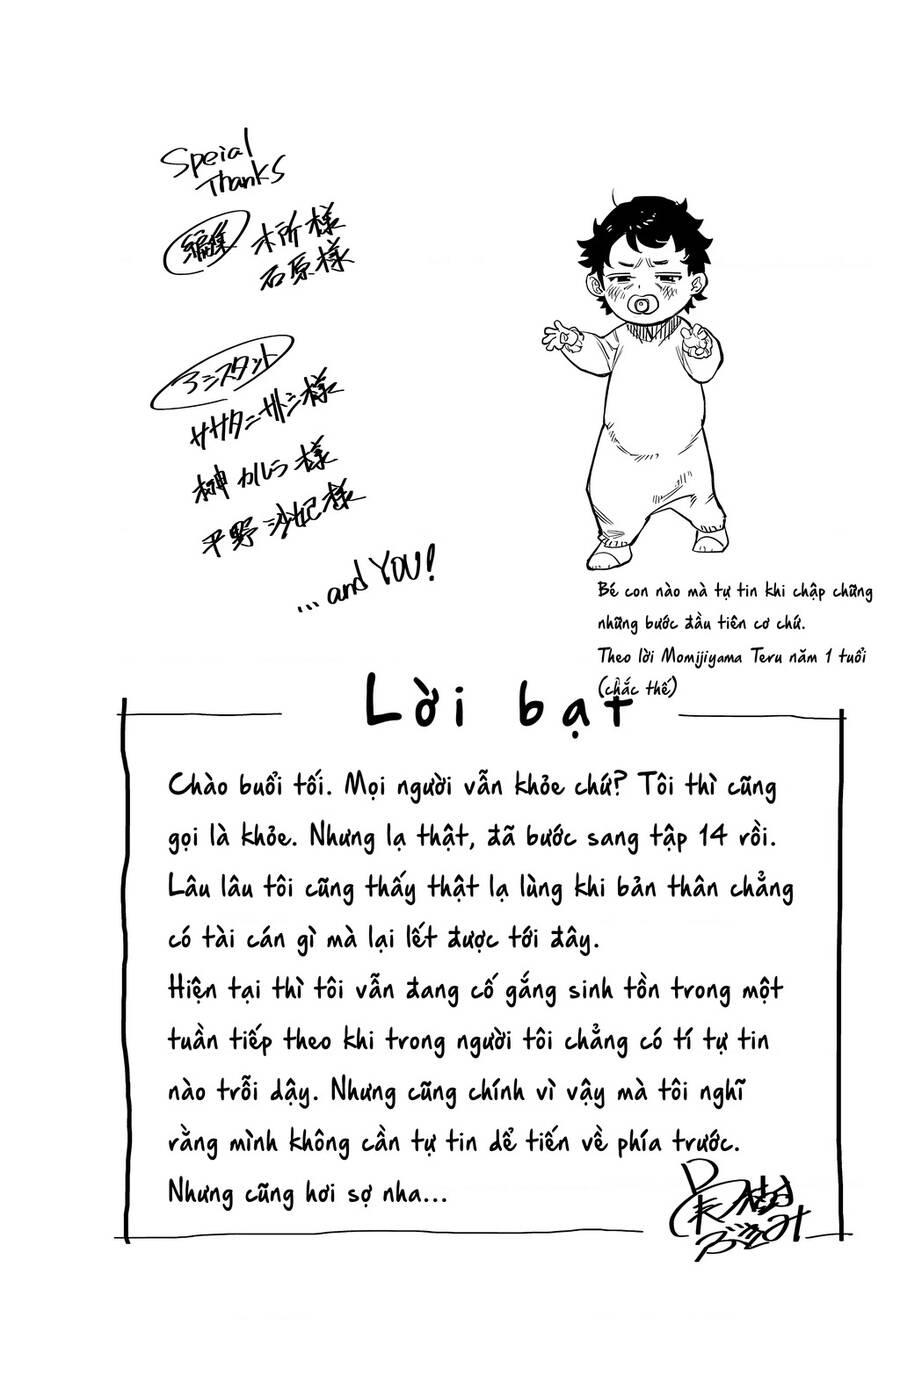 Speial
Thanks
編集 木所様
石原様
アシスタント
ササタニサトシ様
榊 カルラ様
平野沙妃様
...and YOU!
Bé con nào mà tự tin khi chập chững
những bước đầu tiên cơ chứ.
Theo lời Momijiyama Teru năm 1 tuổi
(chắc thế)
Lời bạt
Chào buổi tối. Mọi người vẫn khỏe chứ? Tôi thì cũng
gọi là khỏe. Nhưng lạ thật, đã bước sang tập 14 rồi.
Lâu lâu tôi cũng thấy thật lạ lùng khi bản thân chẳng
có tài cán gì mà lại lết được tới đây.
Hiện tại thì tôi vẫn đang cố gắng sinh tồn trong một
tuần tiếp theo khi trong người tôi chẳng có tí tự tin
nào trỗi dậy. Nhưng cũng chính vì vậy mà tôi nghĩ
rằng mình không cần tự tin dể tiến về phía trước.
Nhưng cũng hơi sợ nha...